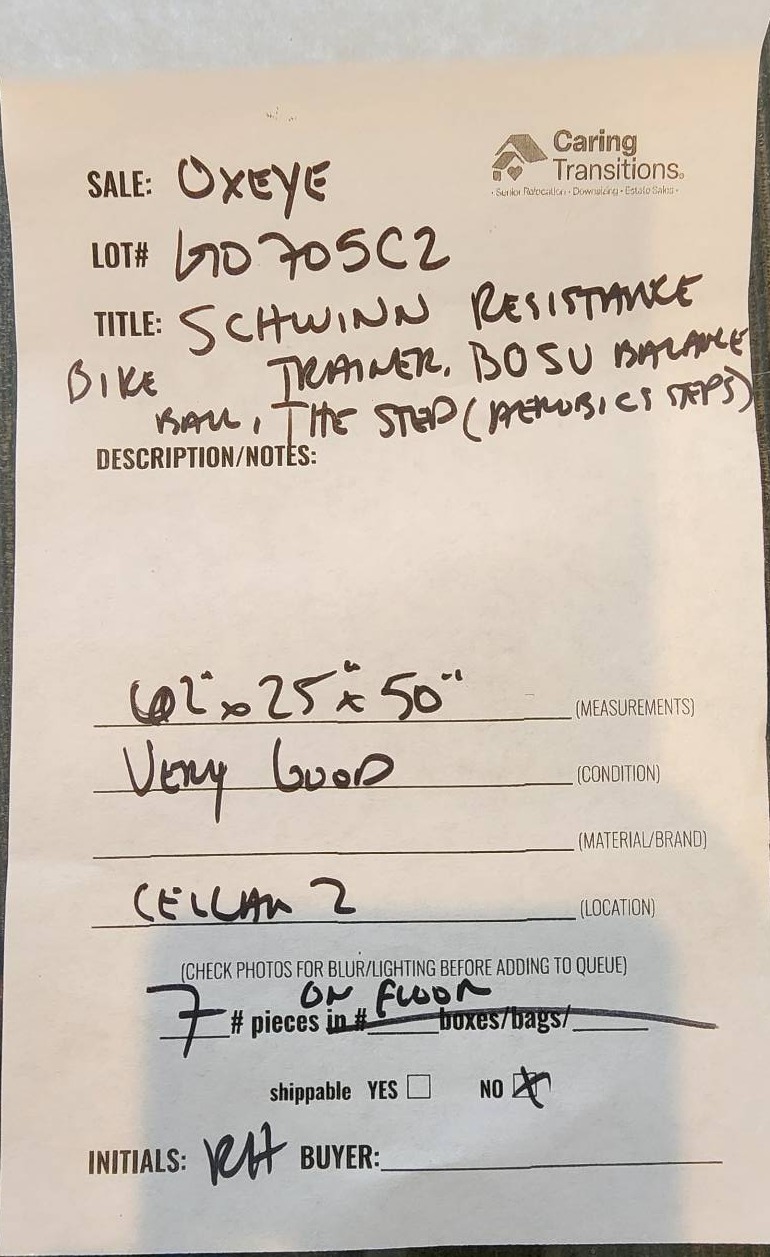 Caring
Transitions®
· Senior Relocation · Downsizing · Estate Sales ·
SALE: OXEYE
LOT# G0705C2
TITLE: SCHWINN RESISTANCE
BIKE TRAINER, BOSU BALANCE
BALL, THE STEP (AEROBICS STEPS)
DESCRIPTION/NOTES:
62" x 25" x 50" (MEASUREMENTS)
VERY GOOD (CONDITION)
(MATERIAL/BRAND)
CELLAR 2 (LOCATION)
(CHECK PHOTOS FOR BLUR/LIGHTING BEFORE ADDING TO QUEUE)
ON FLOOR
7 # pieces in # boxes/bags/
shippable YES NO X
INITIALS: RH BUYER: